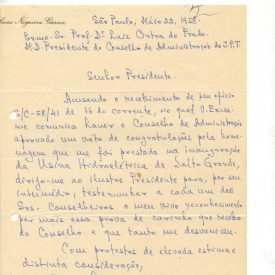 Lucas Nogueira Garcez
São Paulo, Maio 22, 1958.
Exmo. Sr. Prof. Dr. Luis Cintra do Prado.
M.D. Presidente do Conselho de Administração do I.P.T.
Senhor Presidente.
Acusando o recebimento de seu ofício
S/C-58/41 de 16 do corrente, no qual V. Excia.
me comunica haver o Conselho de Administração
aprovado um voto de congratulações pela home-
nagem que me foi prestada na inauguração
da Usina Hidroelétrica de Salto Grande,
dirijo-me ao ilustre Presidente para, por seu
intermédio, testemunhar a cada um dos
Srs. Conselheiros o meu vivo reconhecimento
por mais essa prova de carinho que recebo
do Conselho e que tanto me desvanece.
Com protestos de elevada estima e
distinta consideração,